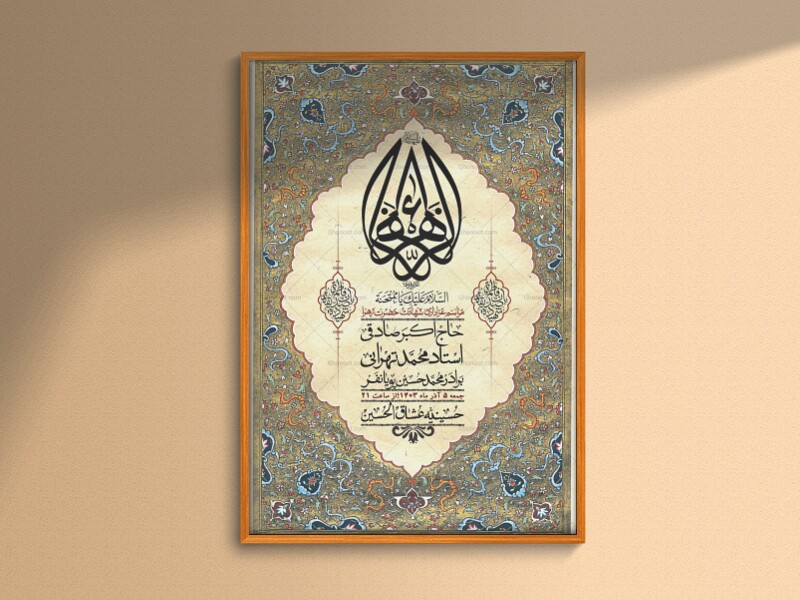 السلام علیک یا ممتحنة
مراسم عزاداری شهادت حضرت زهرا
حاج اکبر صادقی
استاد محمد تهرانی
برادر محمد حسین پویانفر
جمعه ۵ آذر ماه ۱۴۰۳||از ساعت ۲۱
حسینیه عشاق الحسین